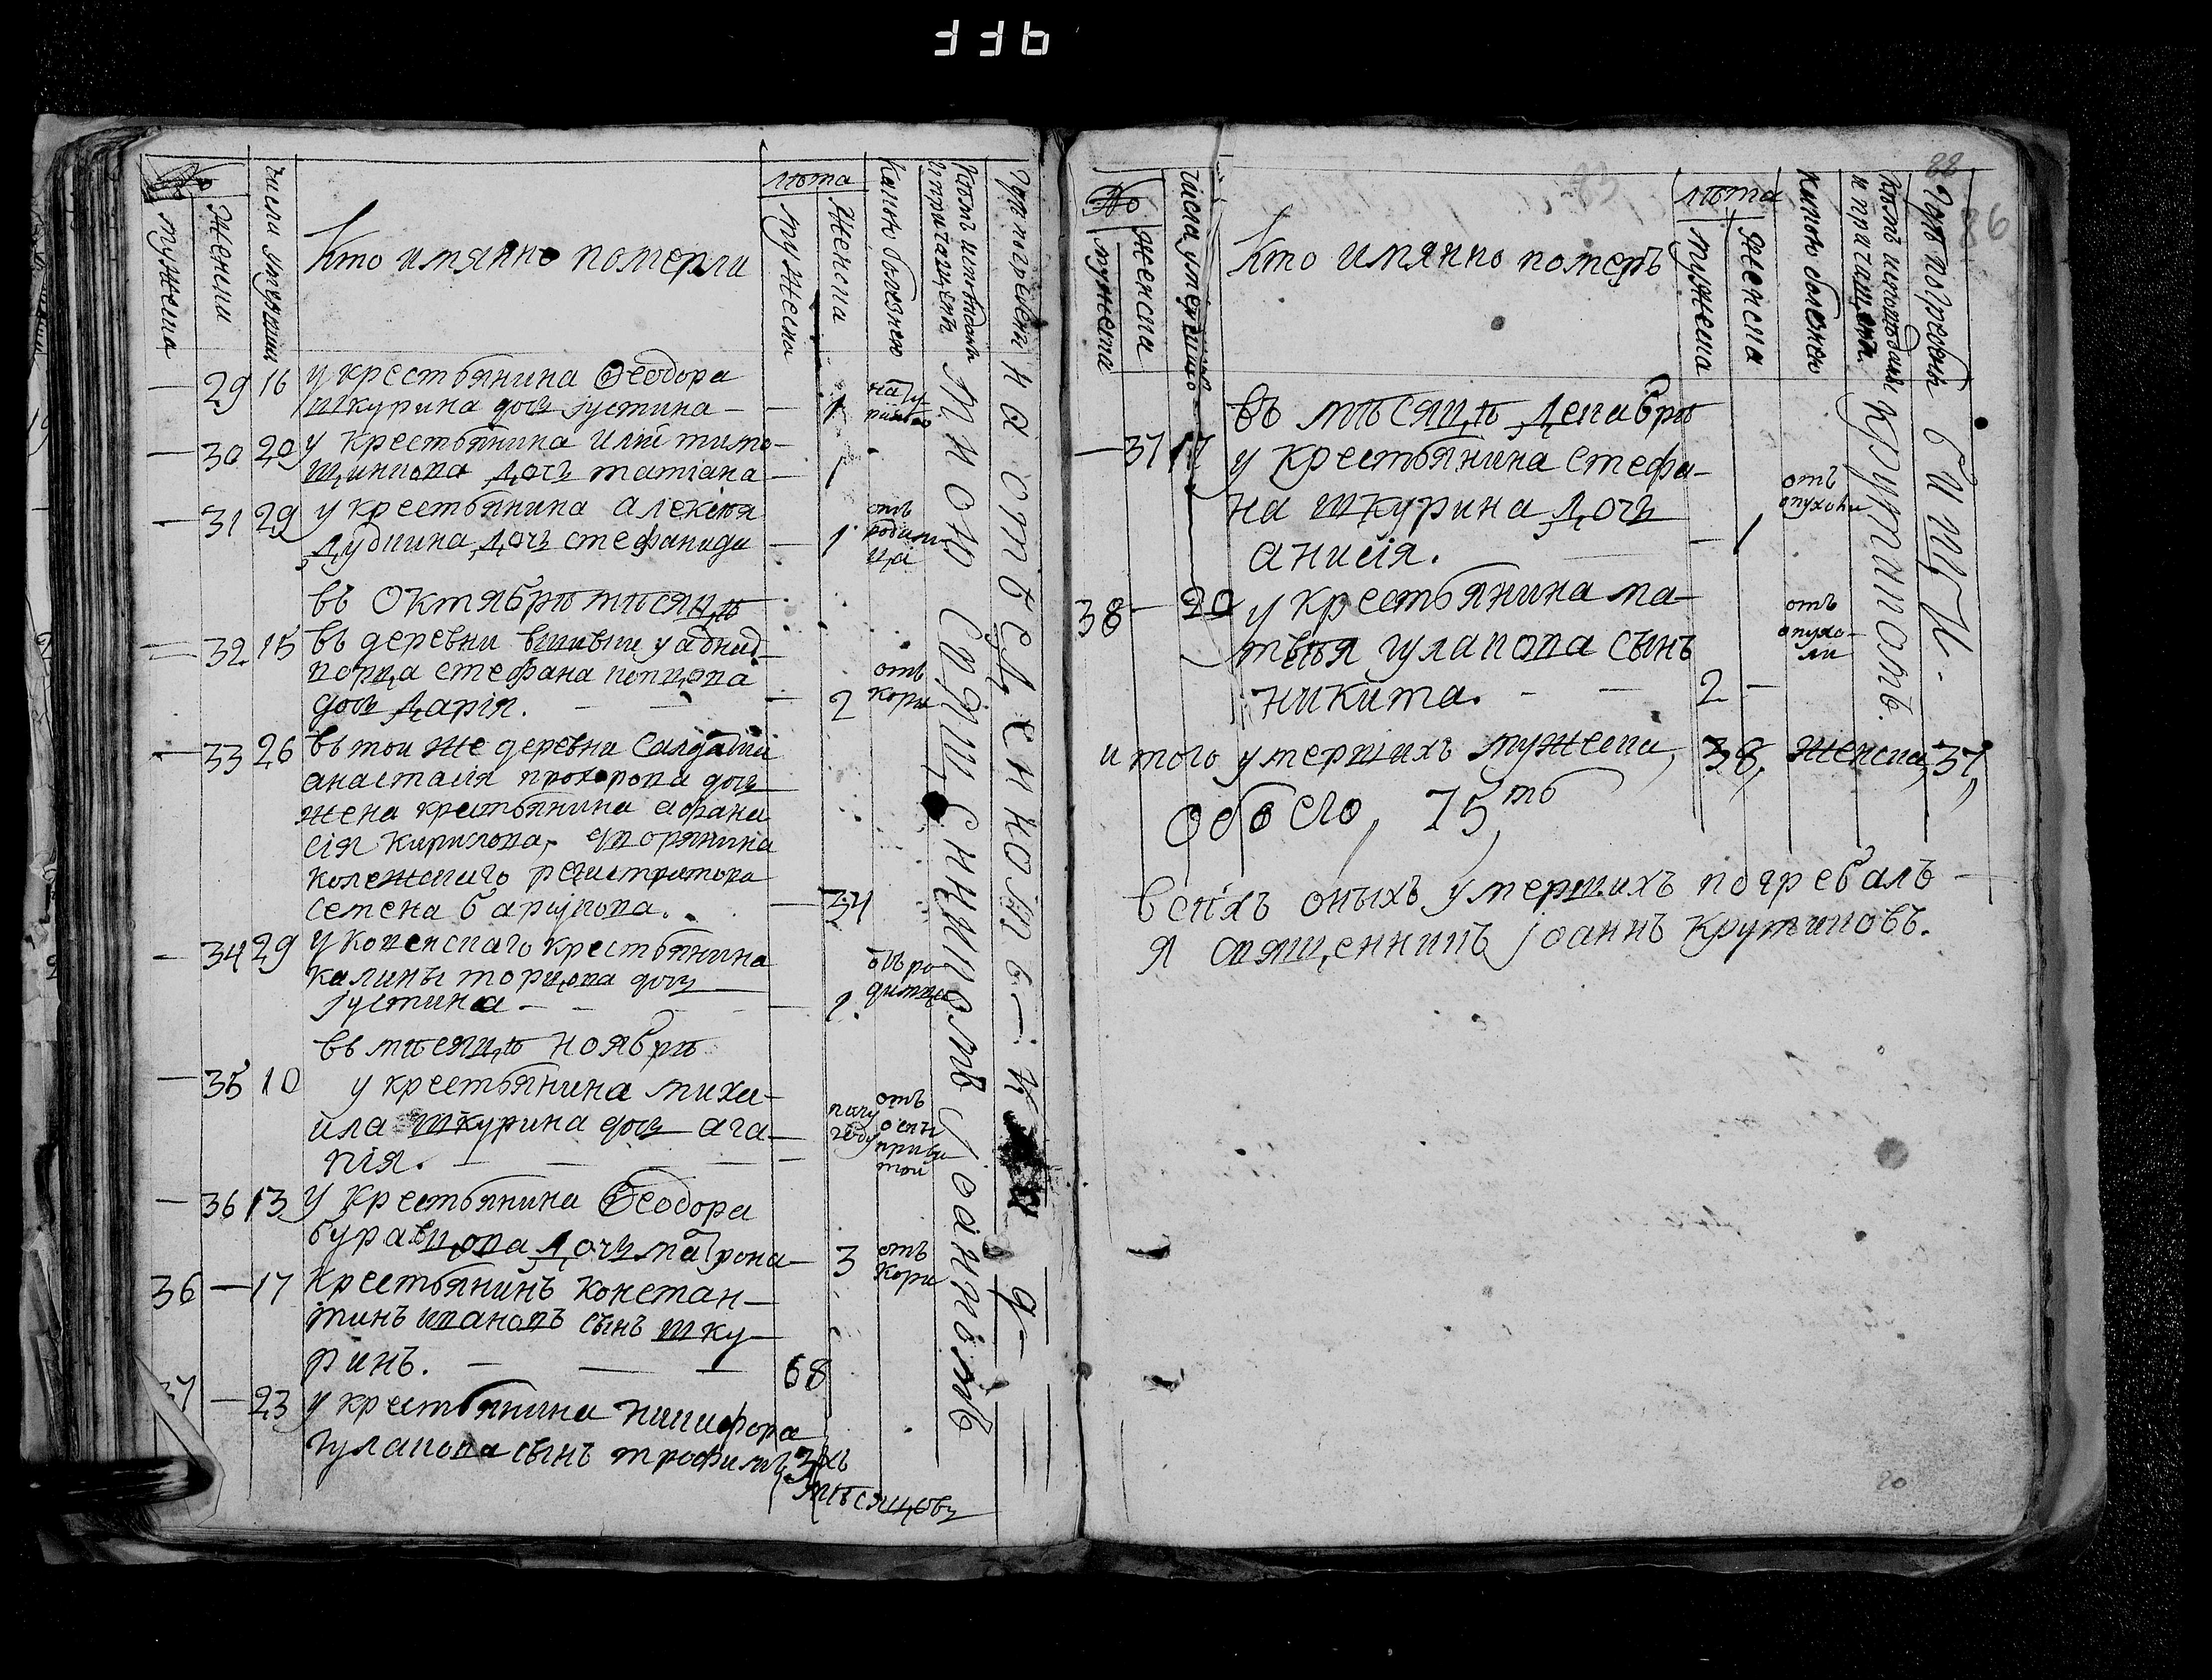 336
№
мужеска
женска
числа умершии
Кто имянно померли
лѣта
мужеска
женска
Какою болезнею
Кѣмъ исповѣданъ и причащенъ
Гдѣ погребены
— 29 16 у крестьянина Ѳеодора
Шкурина дочь Іустина — — 1
— 30 20 у крестьянина Иліи тимо-
дочь татіана — 1
— 31 29 у крестьянина алексѣя
дудкина дочь стефанида — 1
отъ родимца
въ Октябрѣ мѣсяцѣ
— 32 15 въ деревни вшивки у
стефана попцова
дочь Дарія. — — — 2
отъ кори
— 33 26 въ той же деревни
анастасія прохорова дочь
жена крестьянина афана
сія Кирилова, дворянина
колежскаго регистратора
семена — 34
— 34 29 у крестьянина
калины дочь
Іустина — — — 1
отъ родимца
въ мѣсяцѣ ноябрѣ
— 35 10 у крестьянина миха-
ила Шкурина дочь ага-
пія. — — —
полу году
отъ оспы приви той
— 36 13 у крестьянина Ѳеодора
буравцова дочь матрона — 3
отъ кори
36 — 17 Крестьянинъ констан-
тинъ ивановъ сынъ шку-
ринъ. — — — 68
37 — 23 у крестьянина никифора
гулакова сынъ трофимъ 3хъ
мѣсяцовъ
мною священникомъ Іоанномъ
на отъведенномъ
88
86
№
мужеска
женска
числа умершихъ
Кто имянно померъ
лѣта
мужеска
женска
Какою болезнею
Кѣмъ исповѣданъ и причащенъ
Гдѣ погребенъ
въ мѣсяцѣ декабрѣ
— 37 17 у крестьянина стефа-
на шкурина дочь
анисія. — 1
отъ опухоли
38 — 20 у крестьянина ма-
твея гулакова сынъ
никита. — — 2 —
отъ опухо-
ли
Крутиковомъ.
итого умершихъ мужеска, 38, женска, 37,
обоего, 75,ть
всѣхъ оныхъ умершихъ погребалъ —
я священникъ Іоаннъ Крутиковъ.
20